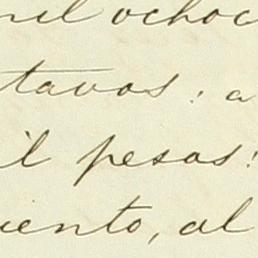 mil ochoc
tavos: a
il pesos:
iento, al